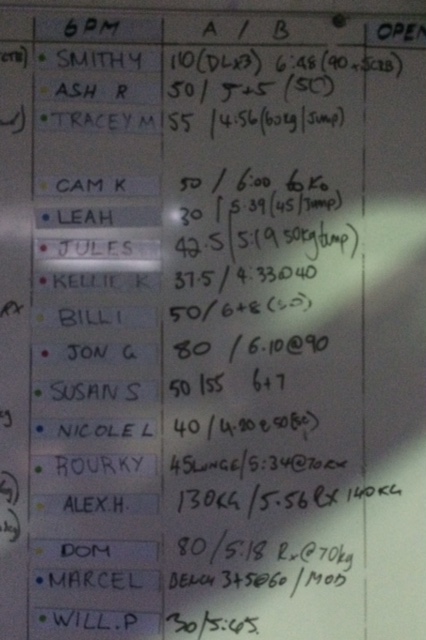 6PM A / B OPEN
SMITHY 110(DLx3) 6:48(90
ASH R 50/ 5+5 (SC)
TRACEY M 55 /4:56(60kg/jump)
CAM K 50 / 6:00 60 KG
LEAH 30 / 5.39(45/Jump)
JULES 42.5 50kg jump)
KELLIE K 37.5/ 4:33@40
BILLI 50/6+8
JON G 80 /6.10@90
SUSAN S 50/55 6+7
NICOLE L 40/4.20@50(sc)
ROURKY 45LUNGE/5:34@70RX
ALEX.H. 130KG /5.56 RX 140KG
DOM 80/5:18 Rx@70kg
MARCEL BENCH 3+5@60/MOD
WILL.P 30/5:45